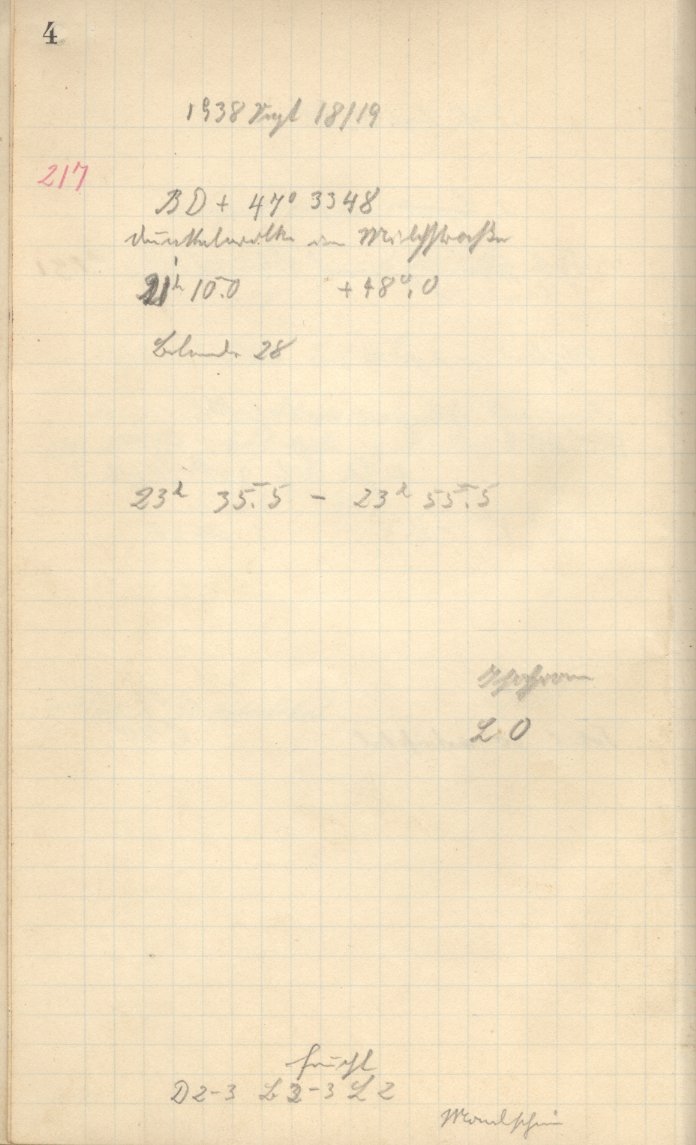 4
1938 Sept 18/19
217
BD + 47° 3348
Dunkelwolke in Milchstraße
21ʰ 10ᵐ.0 + 48°,0
Blende 28
23ʰ 35ᵐ.5 – 23ʰ 55ᵐ.5
L 0
feucht
D 2-3 L 2
Mondschein